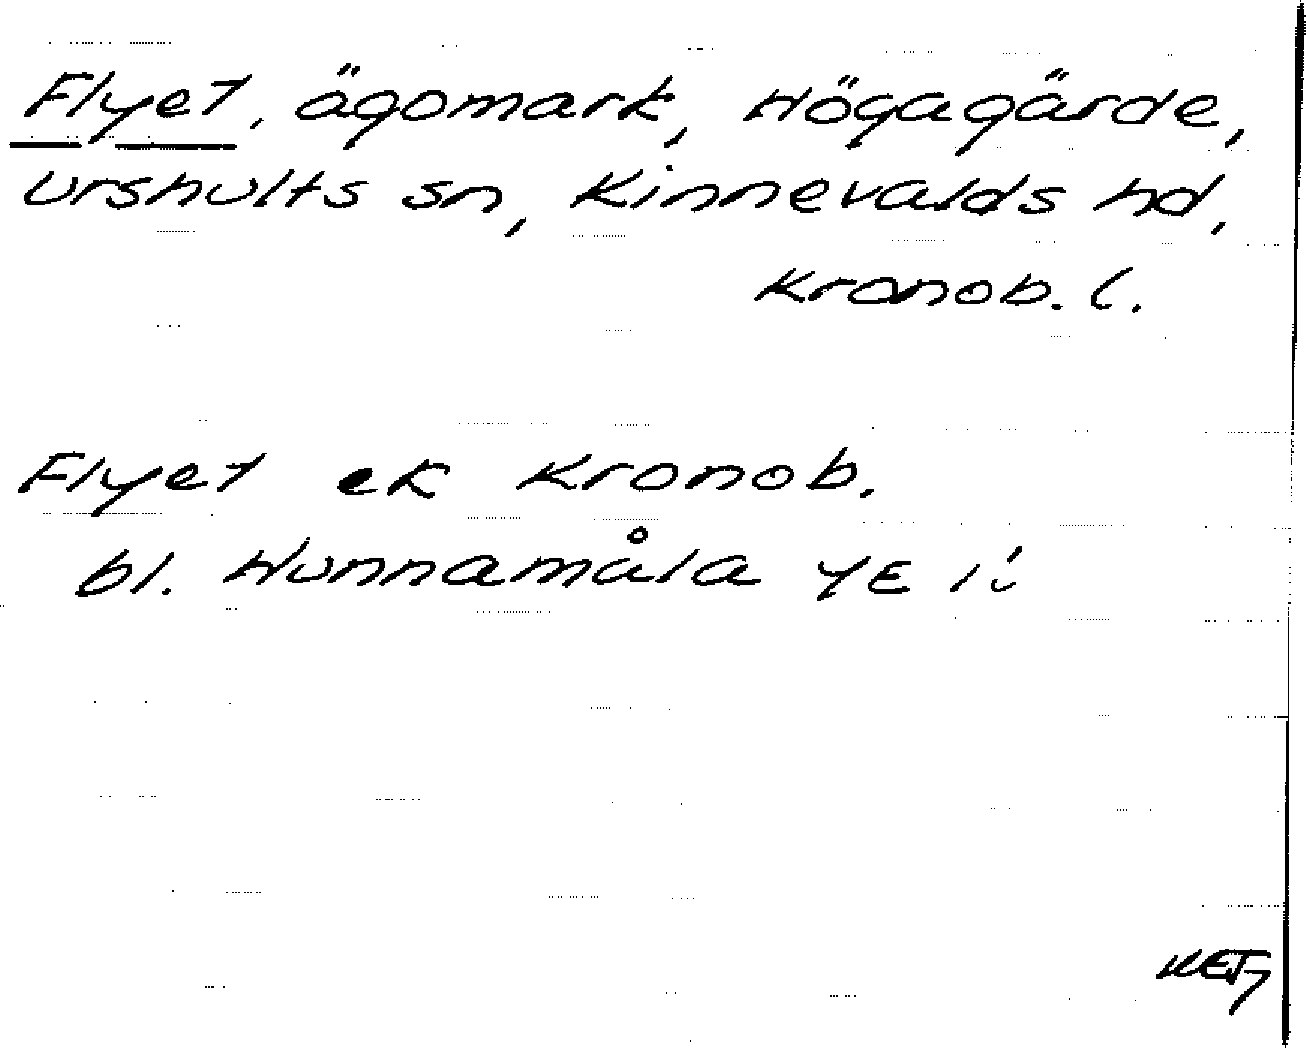 Flyet, ägomark, Högagärde,
Urshults sn, Kinnevalds hd,
Kronob. l.
Flyet ek Kronob.
bl. Hunnamåla 4E